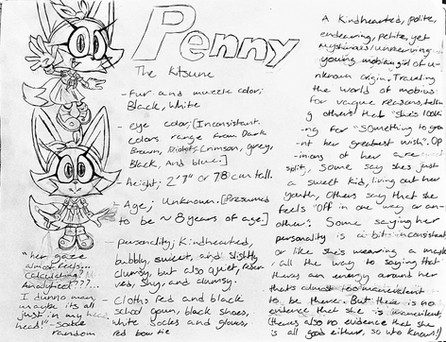 Penny
The Kitsune
- Fur and muzzle color;
Black, White
- eye color; [Inconsistent.
colors range from Dark
Brown, Crimson, grey,
Black, And blue.]
- height; 2'7" or 78 cm tall.
- Age; Unknown. [Presumed
to be ~8 years of age]
- personality; Kindhearted,
bubbly, sweet, and slightly
clumsy, but also quiet, reser-
ved, Shy, and clumsy.
- Cloths Red and black
school gown, black shoes,
White Socks and gloves,
red bow tie
"her gaze
almost feels...
calculating?
Analytical???...
I dunno man,
maybe its all
just in my head,
heh!" - some
random
A Kindhearted, polite,
endearing, petite, yet
mysterious/unnerving
young mobian girl of u-
nknown origin. Traveling
the world of mobius
for vague reasons, tellin
g others that "she's looki
-ng for "something to gra
-nt her greatest wish". Op
-inions of her are
split, Some say she's just
a sweet kid, living out her
youth, Others say that she
feels "off in one way or an-
other". Some saying her
personality is a bit inconsistent
or like she's wearing a mask
all the way to saying that
theres an energy around her
thats almost too malevolent
to be there. But there is no
evidence that she is malevolent,
(theres also no evidence that she
is all good either, so who knows!)